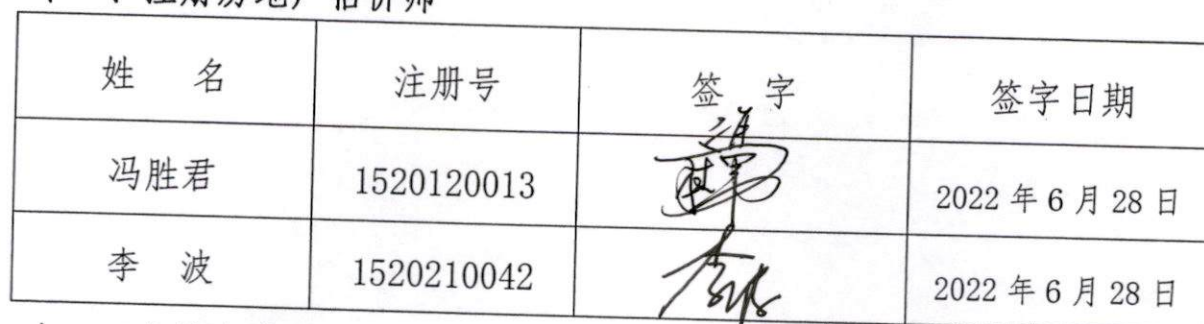 注册房地产估价师
姓 名 注册号 签 字 签字日期
冯胜君 1520120013 2022 年 6 月 28 日
李 波 1520210042 2022 年 6 月 28 日